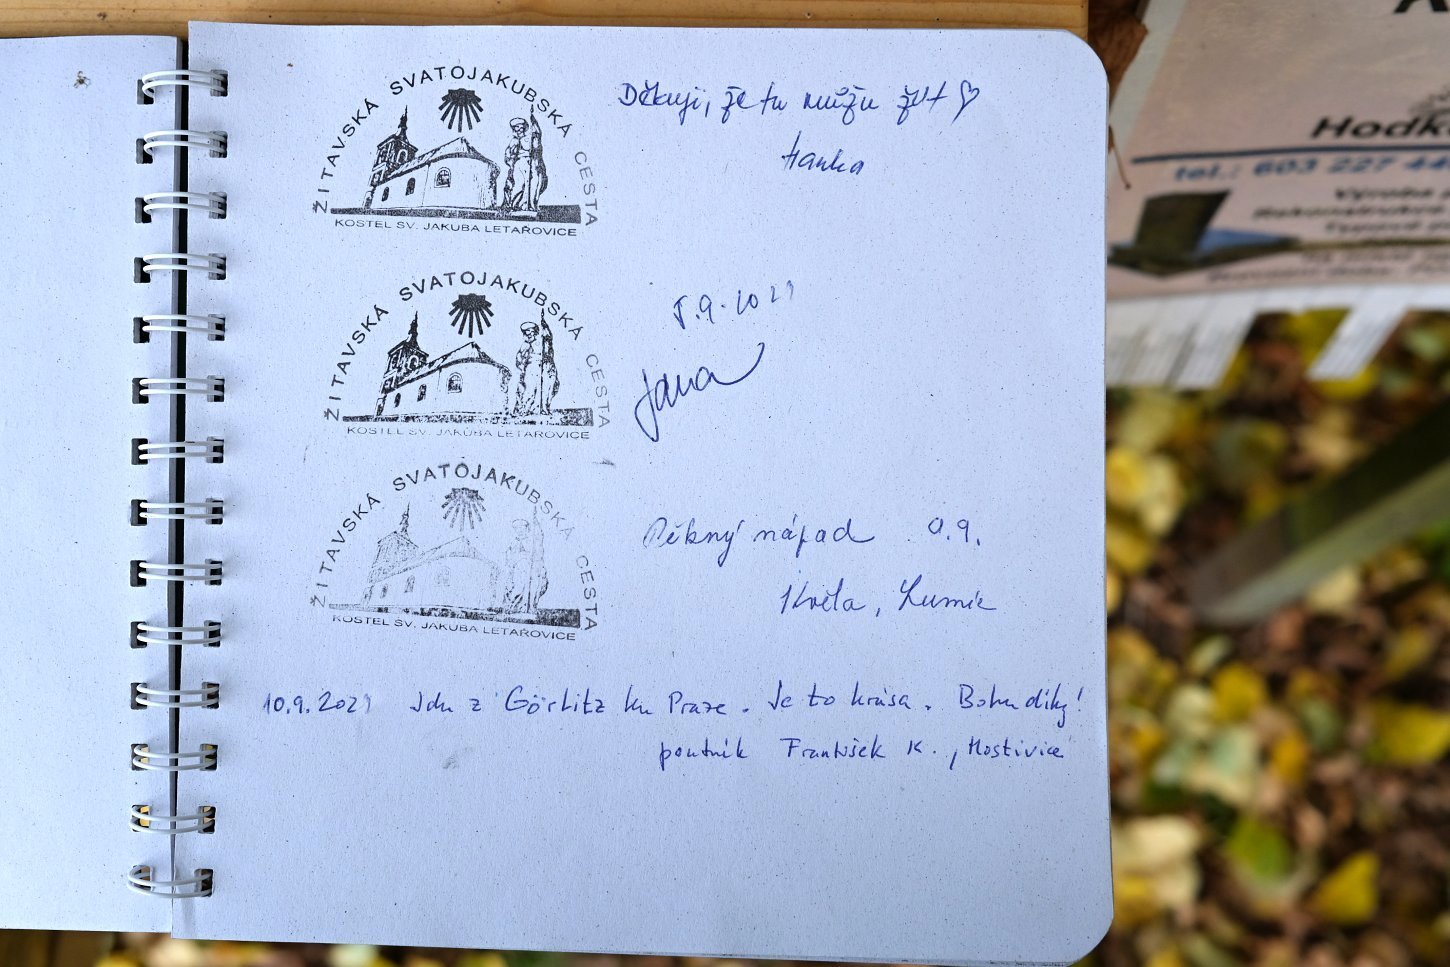 ŽITAVSKÁ SVATOJAKUBSKÁ CESTA
KOSTEL SV. JAKUBA LETAŘOVICE
Děkuji, že tu můžu být ♡
Hanka
ŽITAVSKÁ SVATOJAKUBSKÁ CESTA
KOSTEL SV. JAKUBA LETAŘOVICE
Jana
ŽITAVSKÁ SVATOJAKUBSKÁ CESTA
KOSTEL SV. JAKUBA LETAŘOVICE
Pěkný nápad 9.9.
Květa,
10.9.2021 Jdu z Görlitz ku Praze. Je to krása. Bohu díky!
poutník František K., Hostivice
Hodk
tel.: 603 227 44
Výroba